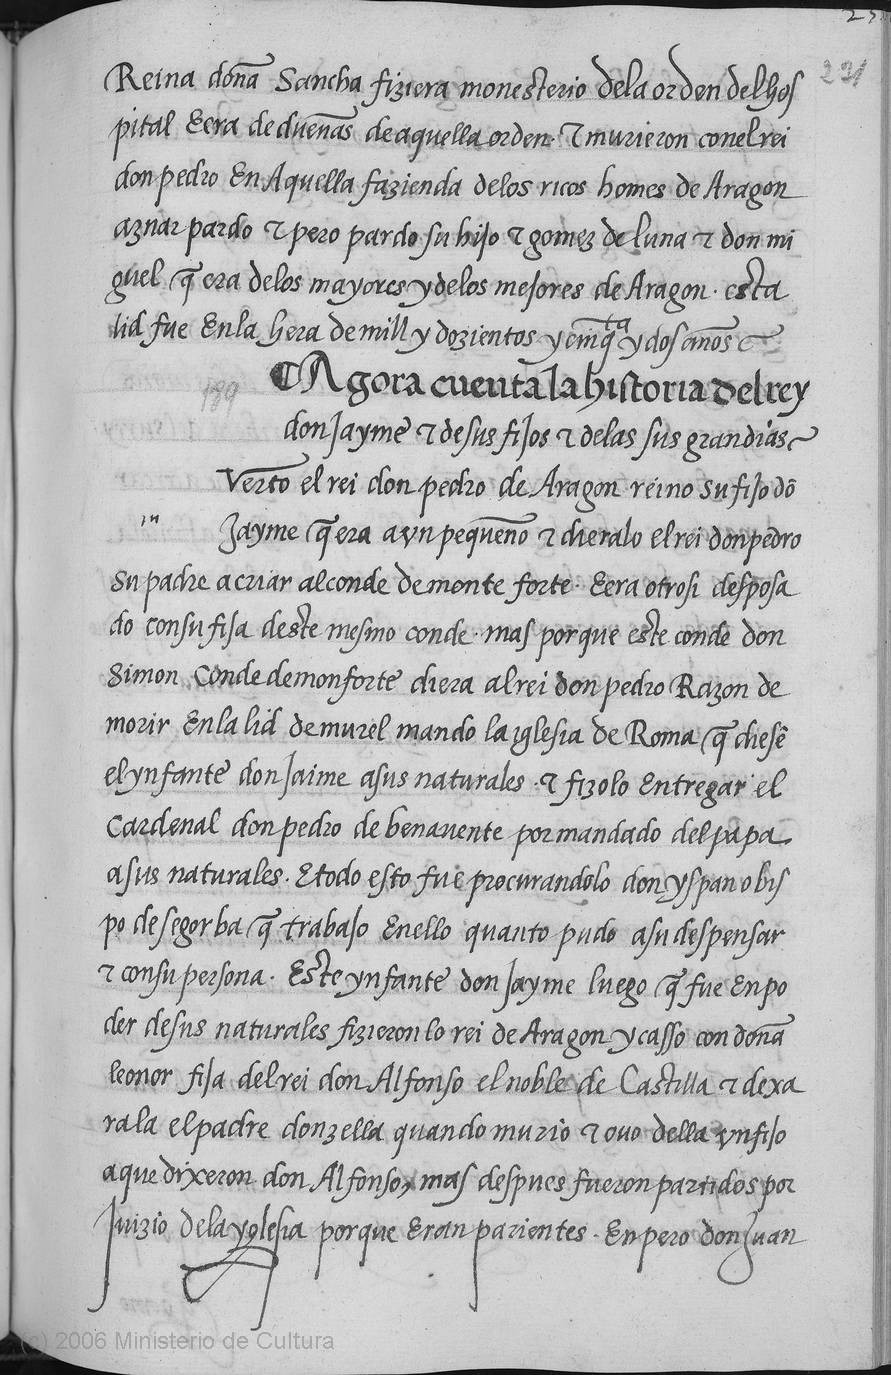 25
231
Reina doña Sancha fiziera monesterio dela orden del hos
pital Eera de dueñas de aquella orden. τ murieron con el rei
don pedro En Aquella fazienda delos ricos homes de Aragon
aznar pardo τ pero pardo su hijo τ gomez de luna τ don mi
guel q̃ era delos mayores y delos mejores de Aragon. esta
lid fue En la hera de mill y dozientos y cinq̃ta y dos años
189
¶ Agora cuenta la historia del rey
don Jayme τ de sus fijos τ de las sus grandias
Verto el rei don pedro de Aragon reino su fijo dõ
m
Jayme q̃ era avn pequeño τ dieralo el rei don pedro
su padre a criar al conde de monte forte. Eera otrosi desposa
do con su fija deste mesmo conde. mas porque este conde don
Simon Conde de monforte diera al rei don pedro Razon de
morir En la lid de murel mando la iglesia de Roma q̃ diesẽ
el ynfante don Jaime a sus naturales. τ fizolo Entregar el
Cardenal don pedro de benauente por mandado del papa
a sus naturales. Etodo esto fue procurandolo don yspan obis
po de segorba q̃ trabajo En ello quanto pudo a su despensar
τ con su persona. Este ynfante don Jayme luego q̃ fue En po
der de sus naturales fizieron lo rei de Aragon y casso con doña
leonor fija del rei don Alfonso el noble de Castilla τ dexa
rala el padre donzella quando murio τ ouo della vn fijo
a que dixeron don Alfonso, mas despues fueron partidos por
Juizio dela yglesia porque Eran parientes. En pero don Juan
(c) 2006 Ministerio de Cultura